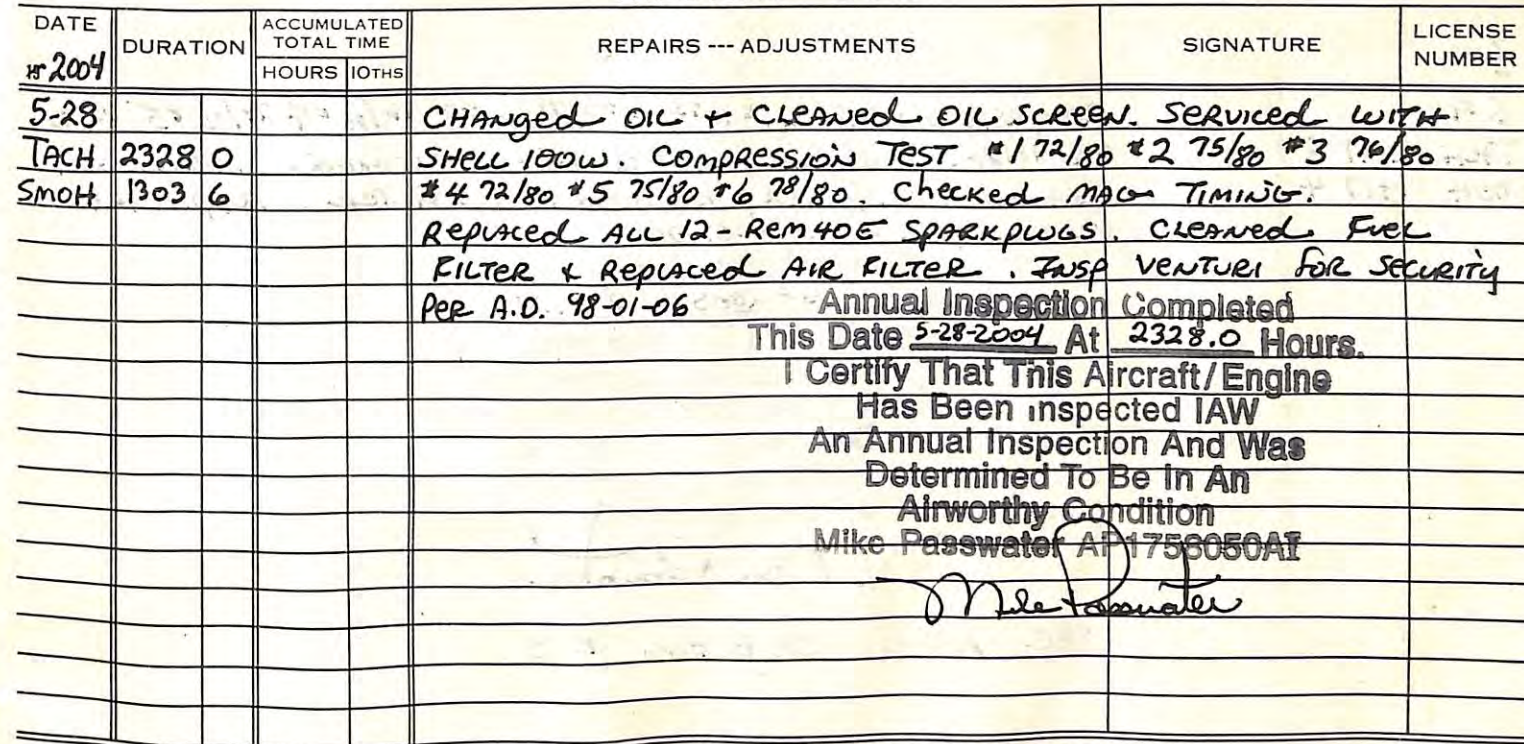 DATE DURATION ACCUMULATED TOTAL TIME REPAIRS --- ADJUSTMENTS SIGNATURE LICENSE NUMBER
2004 HOURS 10THS
5-28 CHANged OIL + CLEANed OIL SCREEN. SERVICED WITH
TACH 2328 0 SHELL 100W. COMPRESSION TEST #1 72/80 #2 75/80 #3 76/80
SMOH 1303 6 #4 72/80 #5 75/80 #6 78/80. Checked MAG TIMING.
Replaced ALL 12 - Rem40E SPARKPLUGS. CLEANed Fuel
FILTER & Replaced AIR FILTER. INSP VENTURI FOR SECURITY
PER A.D. 98-01-06 Annual Inspection Completed
This Date 5-28-2004 At 2328.0 Hours.
I Certify That This Aircraft/Engine
Has Been Inspected IAW
An Annual Inspection And Was
Determined To Be In An
Airworthy Condition
Mike Passwater AP1756050AI
Mike Passwater